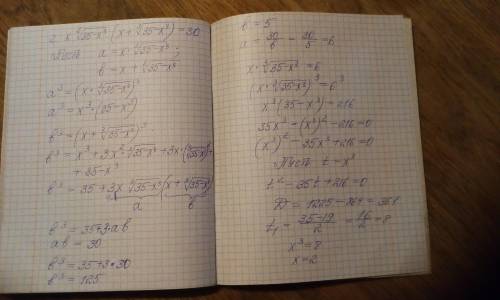 2 x·∛(35-x³)·(x+∛(35-x³)) = 30
Пусть a = x·∛(35-x³) ;
b = x+∛(35-x³)
a³ = (x·∛(35-x³))³
a³ = x³·(35-x³)
b³ = (x+∛(35-x³))³
b³ = x³+3x²·∛(35-x³)+3x·(∛(35-x³))²+
+35-x³
b³ = 35+3x·∛(35-x³)·(x+∛(35-x³))
a b
b³ = 35+3·ab
ab = 30
b³ = 35+3·30
b³ = 125
b = 5
a = 30/b = 30/5 = 6
x·∛(35-x³) = 6
(x·∛(35-x³))³ = 6³
x³(35-x³) = 216
35x³-(x³)²-216=0
(x³)²-35x³+216=0
Пусть t = x³
t²-35t+216=0
D = 1225-864 = 361
t₁ = (35-19)/2 = 16/2 = 8
x³ = 8
x = 2